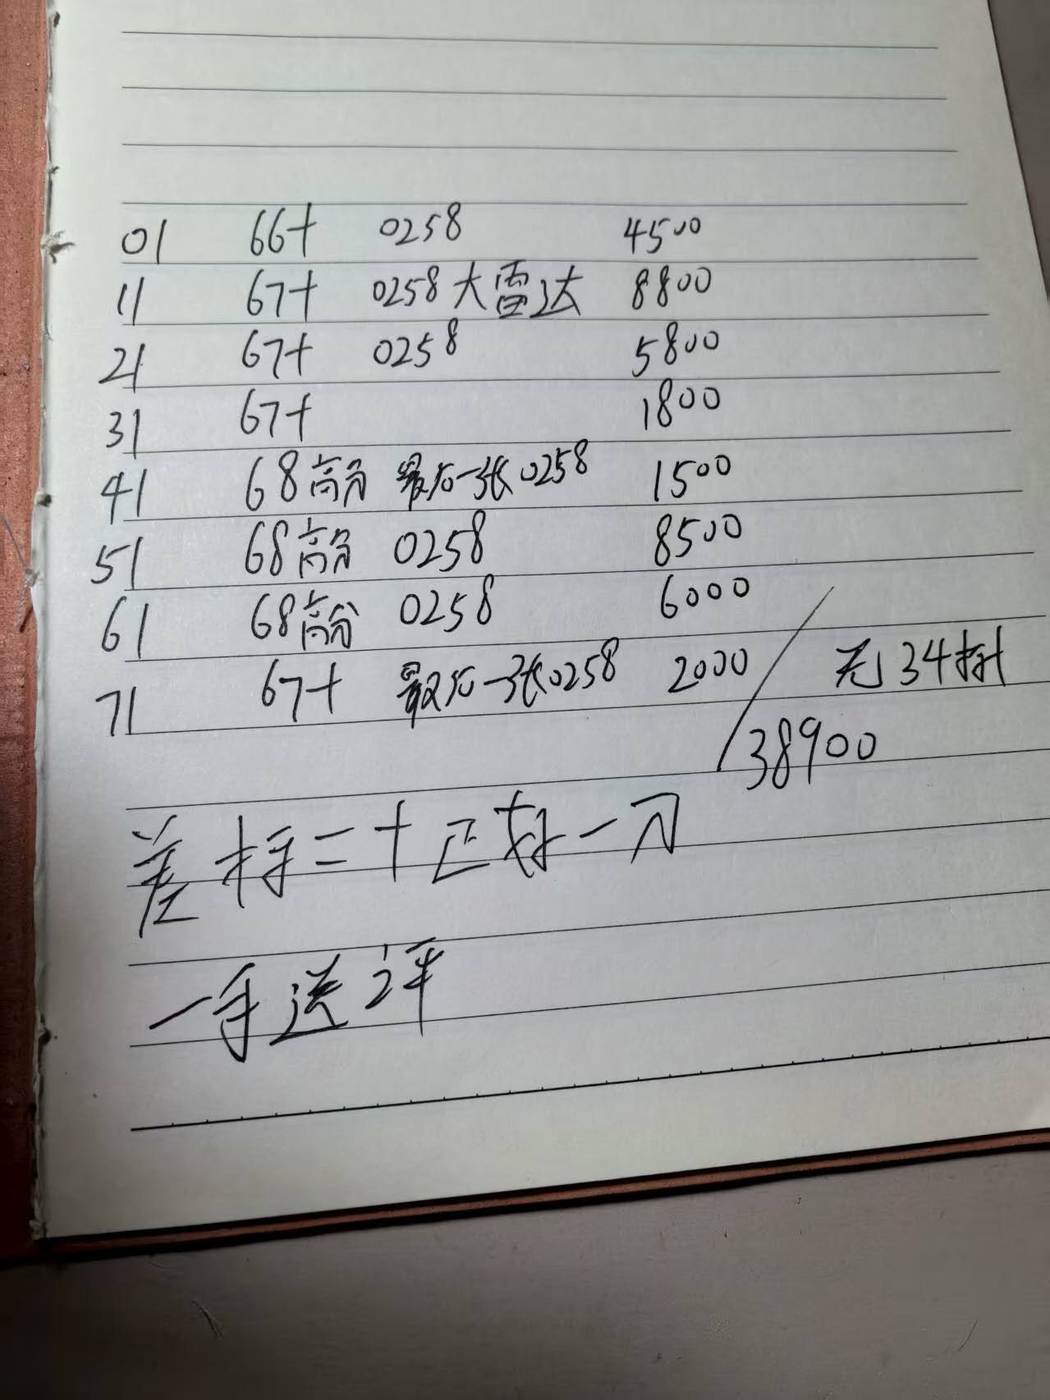 01 66+ 0258 4500
11 67+ 0258大雷达 8800
21 67+ 0258 5800
31 67+ 1800
41 68高分 最后一张0258 1500
51 68高分 0258 8500
61 68高分 0258 6000
71 67+ 最后一张0258 2000 无34标
38900
差标二十正好一刀
一手送评